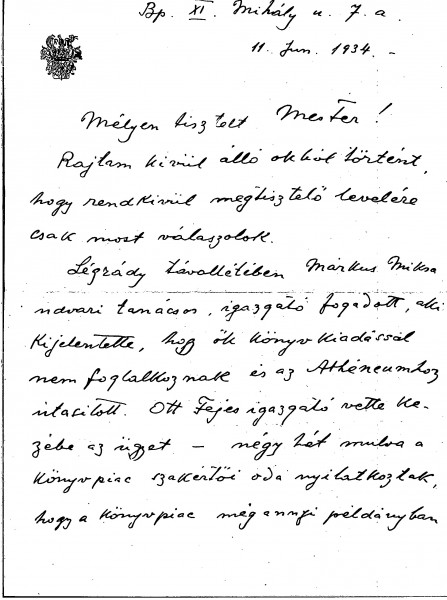 Bp. XI. Mihály u. 7. a.
11. Jun. 1934. -
Mélyen tisztelt Mester!
Rajtam kivül álló okból történt,
hogy rendkivül megtisztelő levelére
csak most válaszolok.
Légrády távollétében Márkus Miksa
udvari tanácsos, igazgató fogadott, aki
kijelentette, hogy ők könyvkiadással
nem foglalkoznak és az Athéneumhoz
utasitott. Ott Fejes igazgató vette ke-
zébe az ügyet – négy hét mulva a
könyvpiac szakértői oda nyilatkoztak,
hogy a könyvpiac mégannyi példányban